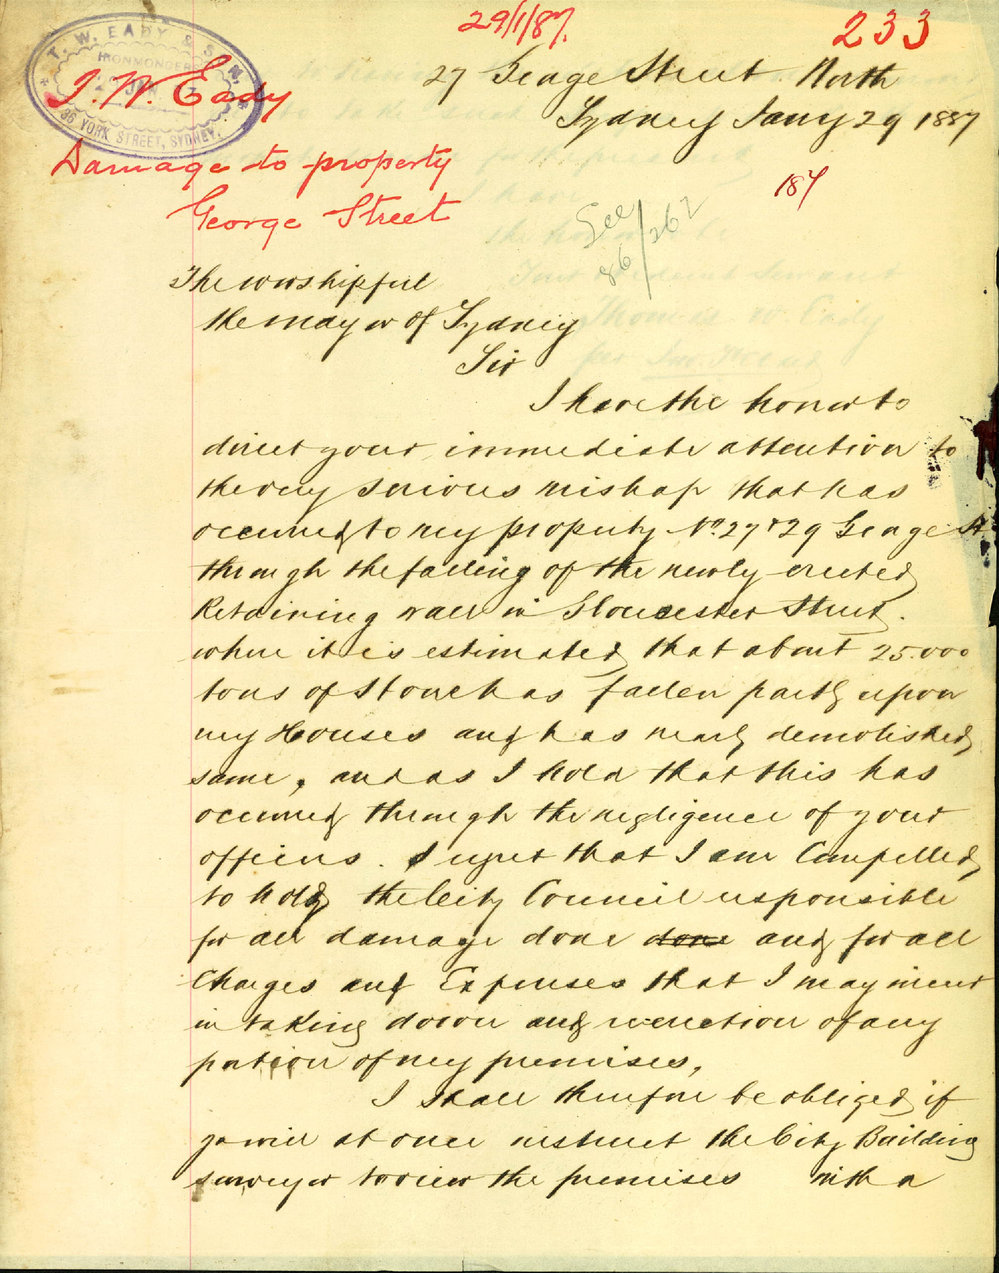 29/1/87.
233
T. W. EADY & SON.
IRONMONGERS
JAN
36 YORK STREET, SYDNEY.
T. W. Eady
27 George Street North
Sydney Jany 29 1887
Damage to property
George Street
187
See
86/262
The worshipful
the mayor of Sydney
Sir
I have the honor to
direct your immediate attention to
the very serious mishap that has
occurred to my property No. 27 & 29 George St
through the falling of the newly erected
Retaining wall in Gloucester Street.
where it is estimated that about 25.000
tons of Stone has fallen partly upon
my Houses and has nearly demolished
same, and as I hold that this has
occurred through the negligence of your
officers. I regret that I am Compelled
to hold the City Council responsible
for all damage done done and for all
Charges and Expenses that I may incur
in taking down and reerection of any
portion of my premises,
I shall therefore be obliged if
yo will at once instruct the City Building
surveyor to view the premises with a
I have
the honor to be
Your obedient Servant
Thomas W. Eady
per